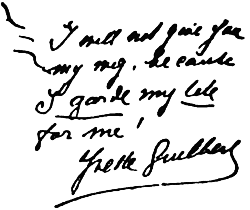 I will not give you
my mug, because
I garde my tete
for me!
Yvette Guilbert